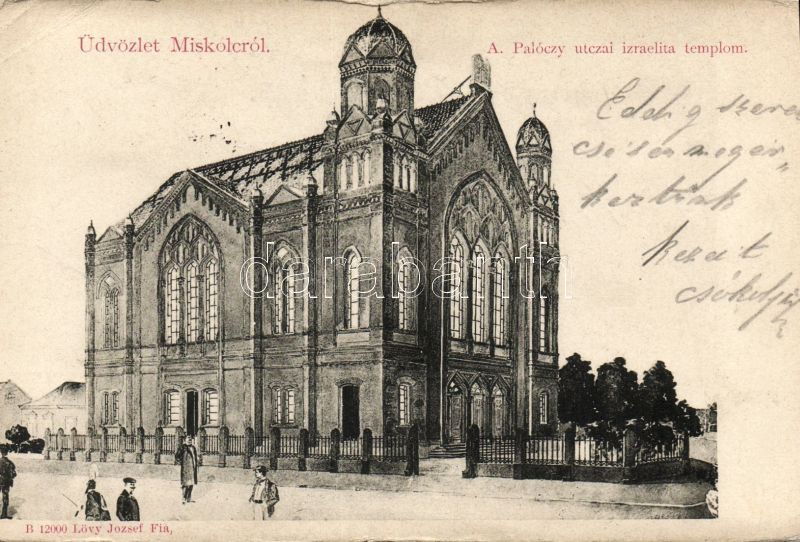 Üdvözlet Miskolcról.
A. Palóczy utczai izraelita templom.
Eddig szeren
csésen megér
keztünk
kezeit
csókolja
darabanth
B 12000 Lövy Jozsef Fia,